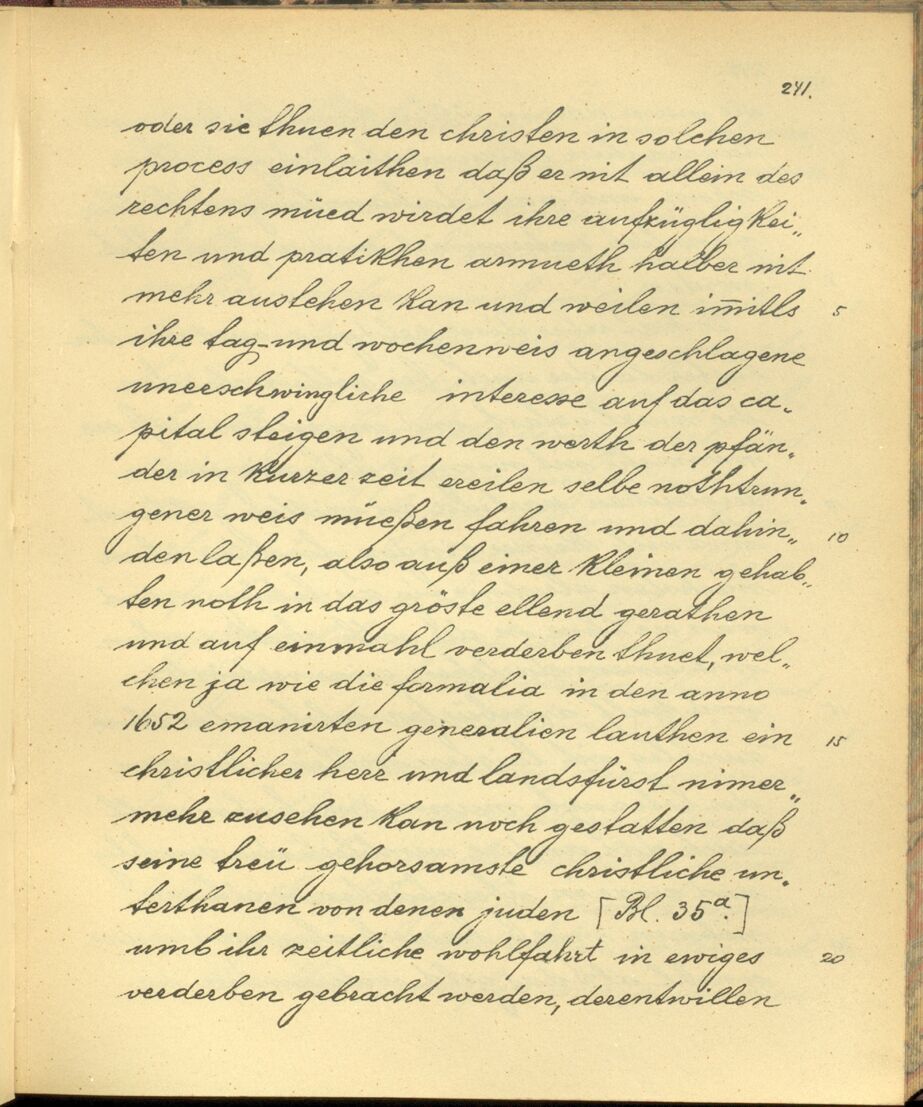 241.
oder sie thuen den christen in solchen
process einlaithen daß er nit allein des
rechtens müed wirdet ihre aufzügligkei„
ten und pratikhen armueth halber nit
mehr austehen kan und weilen im̄itls 5
ihre tag-und wochenweis angeschlagene
unerschwingliche interesse auf das ca„
pital steigen und den werth der pfän„
der in kurzer zeit ereilen selbe nothtrun„
gener weis müeßen fahren und dahin„ 10
den laßen, also auß einer kleinen gehab„
ten noth in das gröste ellend gerathen
und auf einmahl verderben thuet, wel„
chen ja wie die formalia in den anno
1652 emanirten generalien lauthen ein 15
christlicher herr und landsfürst nimer„
mehr zusehen kan noch gestatten daß
seine treü gehorsamste christliche un„
terthanen von denen juden [Bl. 35a.]
umb ihr zeitliche wohlfahrt in ewiges 20
verderben gebracht werden, derentwillen